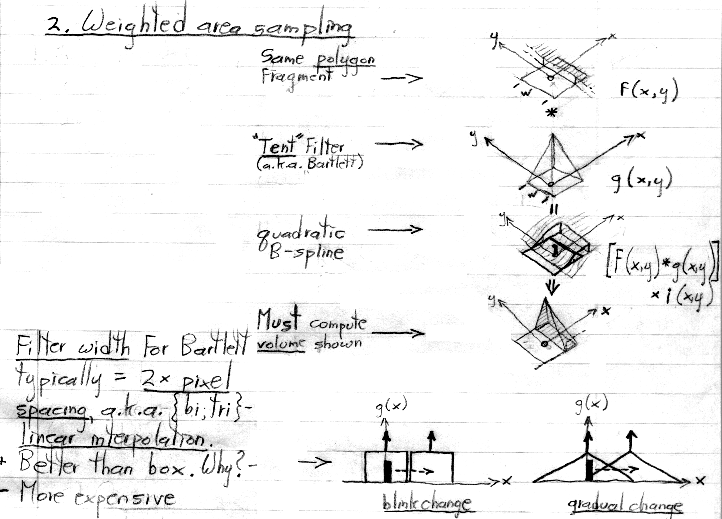 2. Weighted area sampling
Same polygon
Fragment
y
x
w
F(x,y)
*
"Tent" Filter
(a.k.a. Bartlett)
y
x
w
g(x,y)
=
quadratic
B-spline
y
x
[F(x,y)*g(x,y)]
× i(x,y)
Must compute
volume shown
y
x
Filter width For Bartlett
typically = 2× pixel
spacing, a.k.a. {bi; tri}-
linear interpolation.
+ Better than box. Why? -
- More expensive
g(x)
x
blink change
g(x)
x
gradual change